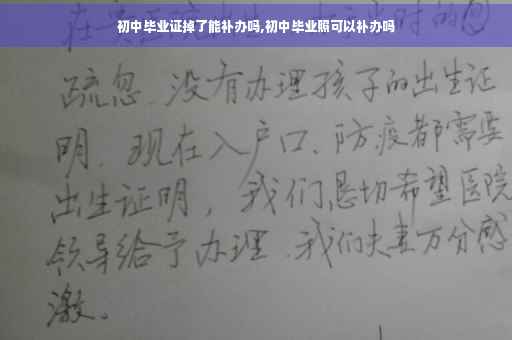 初中毕业证掉了能补办吗,初中毕业照可以补办吗
疏忽、没有办理孩子的出生证
明、现在入户口、防疫都需要
出生证明，我们恳切希望医院
领导给予办理、我们夫妻万分感
激。